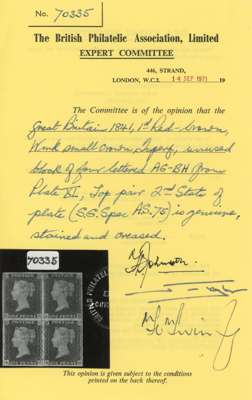 No. 70335
The British Philatelic Association, Limited
EXPERT COMMITTEE
446, STRAND,
LONDON, W.C.2. 14 SEP 1971 19
The Committee is of the opinion that the
Great Britain 1841, 1d Red-brown,
Wmk small crown, Imperf, unused
block of four lettered AG-BH from
Plate 11, Top pair 2nd State of
plate (S.G. Spec AS. 75) is genuine,
stained and creased.
70335
BRITISH PHILATELIC
This opinion is given subject to the conditions
printed on the back thereof.